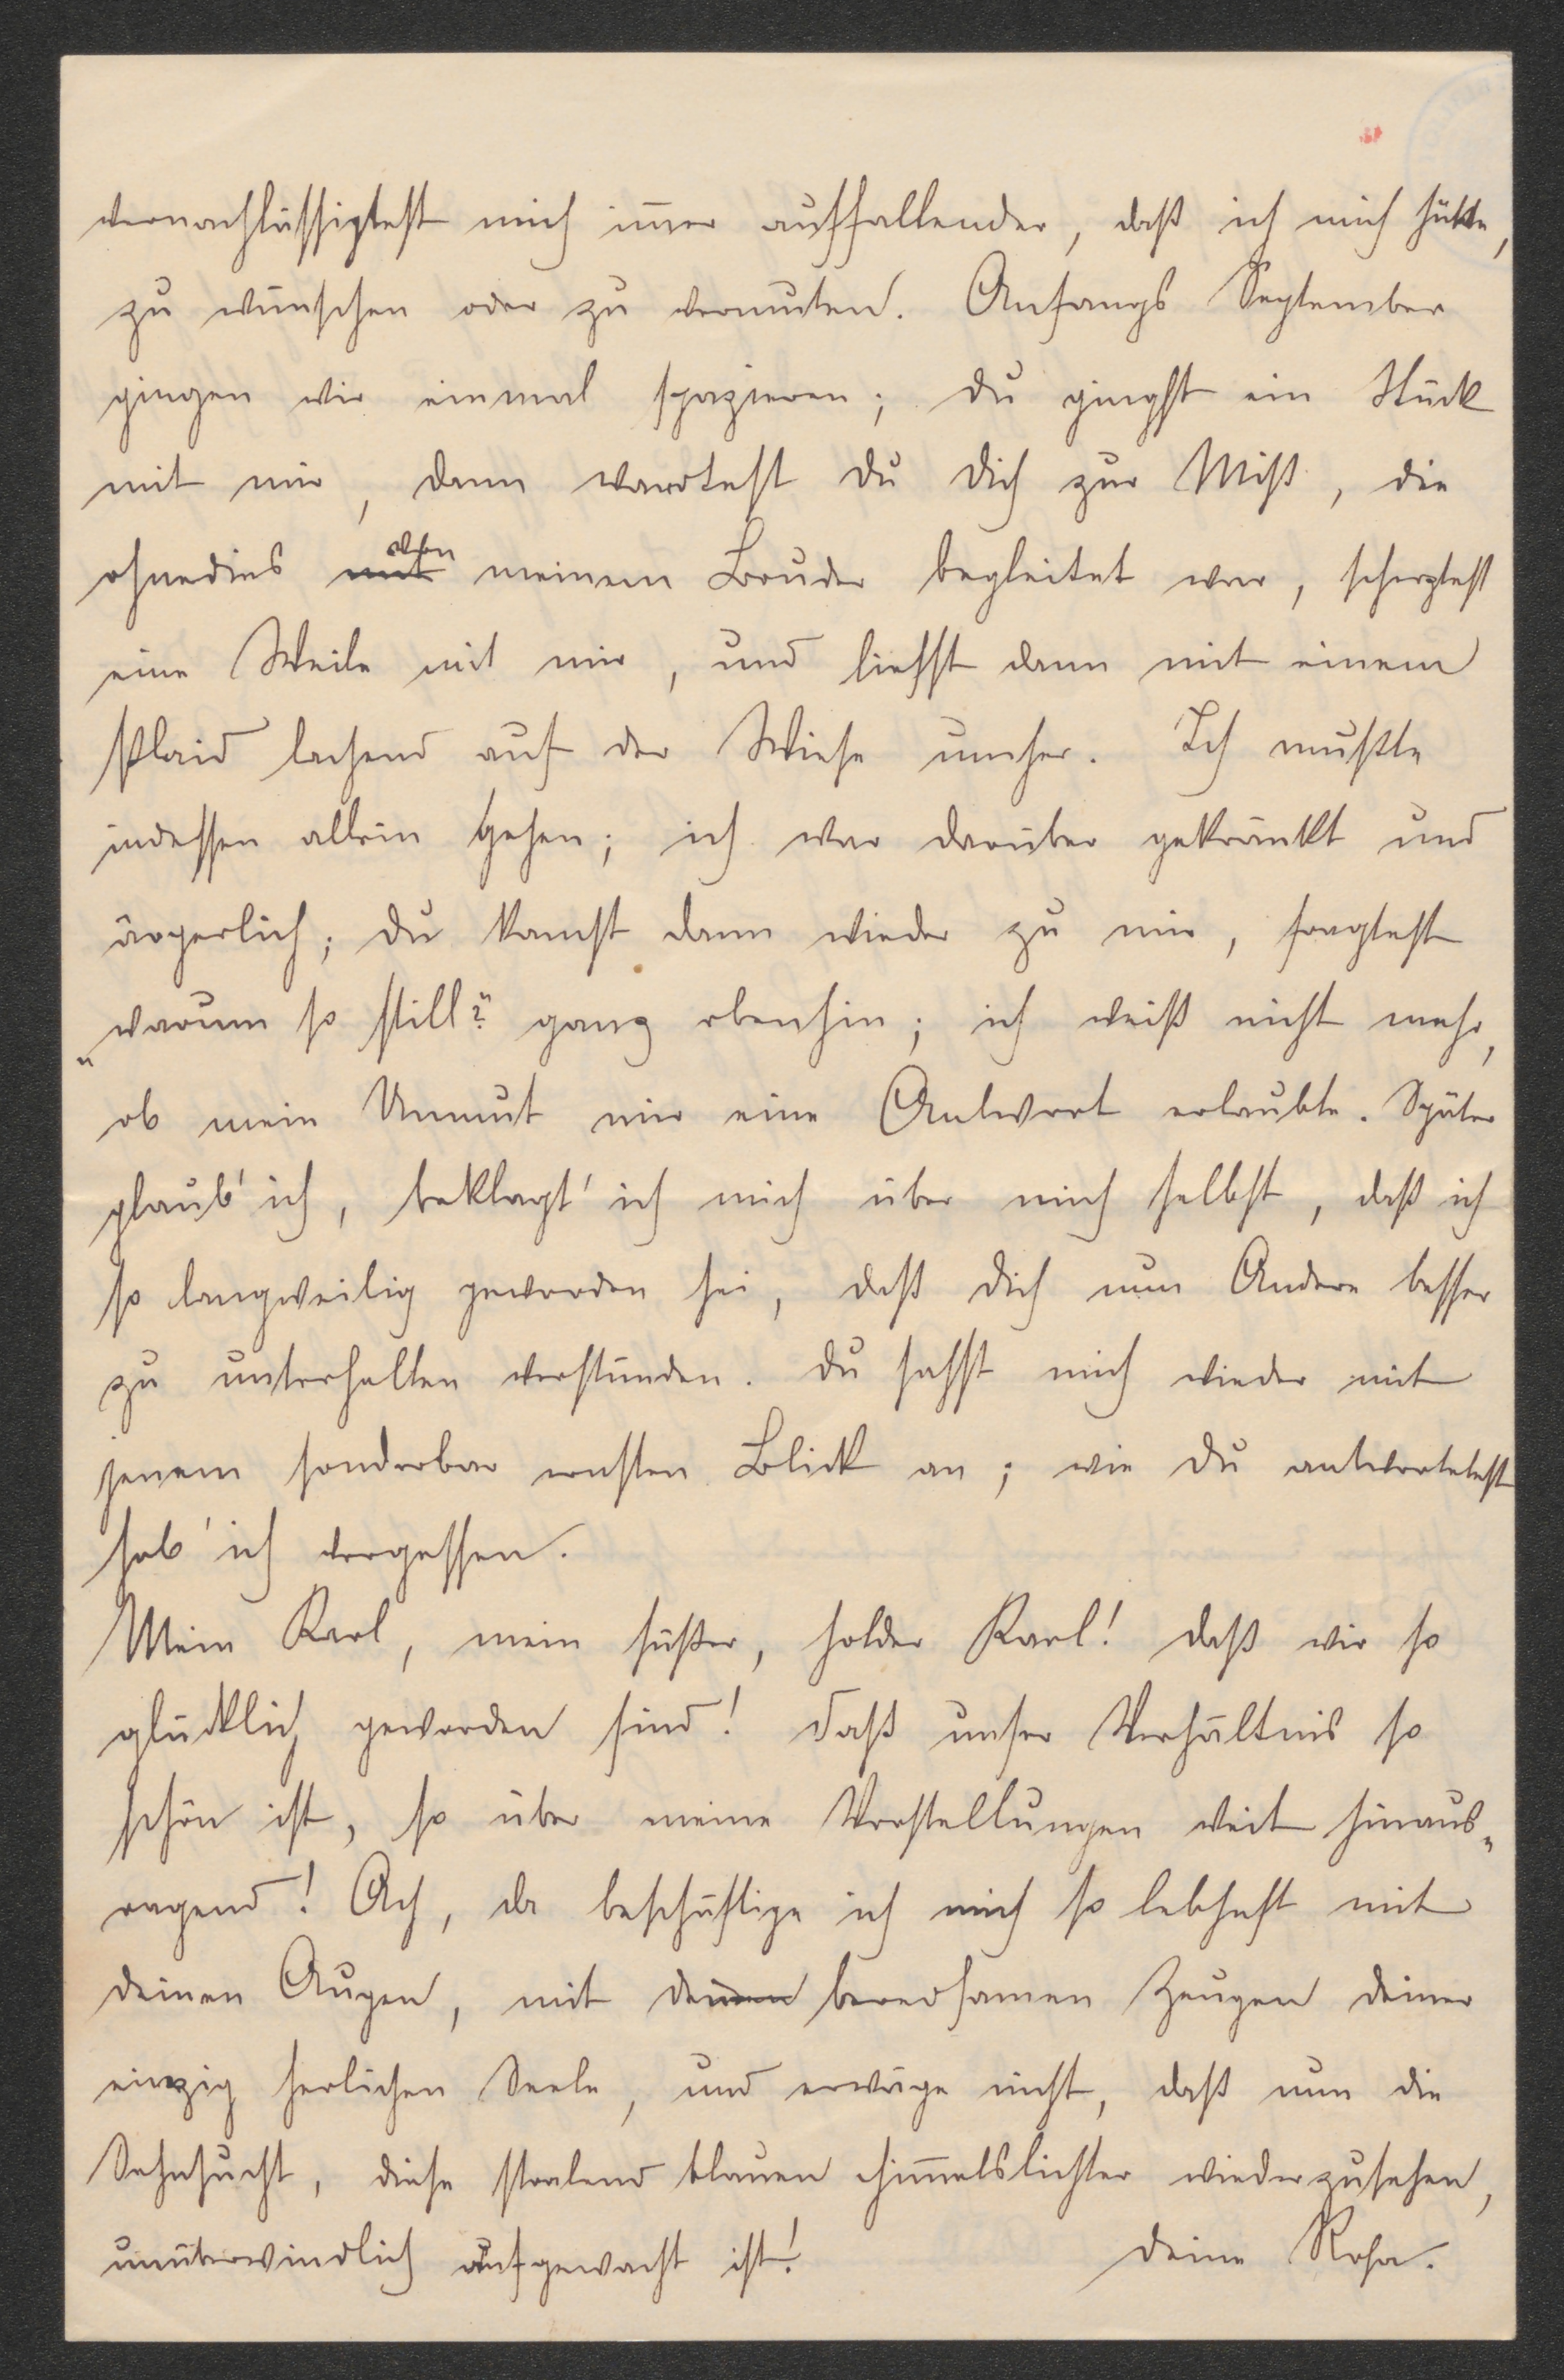 vernachlässigtest mich im̅er auffallender, daß ich mich hütete,
zu wünschen oder zu vermuten. Anfangs September
gingen wir einmal spazieren; du gingst ein Stück
mit mir, dann wandtest du dich zur Miß, die
ohnedies mit von meinem Bruder begleitet war, scherztest
eine Weile mit mir, und liefst dann mit einem
Plaid lachend auf der Wiese umher. Ich mußte
indessen allein gehen; ich war darüber gekränkt und
ärgerlich; du kamst dann wieder zu mir, fragtest
„warum so still?" ganz obenhin; ich weiß nicht mehr,
ob mein Unmut mir eine Antwort erlaubte. Später
glaub' ich, beklagt' ich mich über mich selbst, daß ich
so langweilig geworden sei, daß dich nun Andere besser
zu unterhalten verstünden. Du sahst mich wieder mit
jenem sonderbar ernsten Blick an; wie du antwortetest
hab' ich vergessen.
Mein Karl, mein süßer, holder Karl! daß wir so
glücklich geworden sind! Daß unser Verhältnis so
schön ist, so über meine Vorstellungen weit hinaus„
ragend! Ach, da beschäftige ich mich so lebhaft mit
deinen Augen, mit deinen beredsamen Zeugen deiner
einzig herlichen Seele, und erwäge nicht, daß nun die
Sehnsucht, diese stralend blauen Him̅elslichter wiederzusehen,
unüberwindlich aufgewacht ist! Deine Rosa.